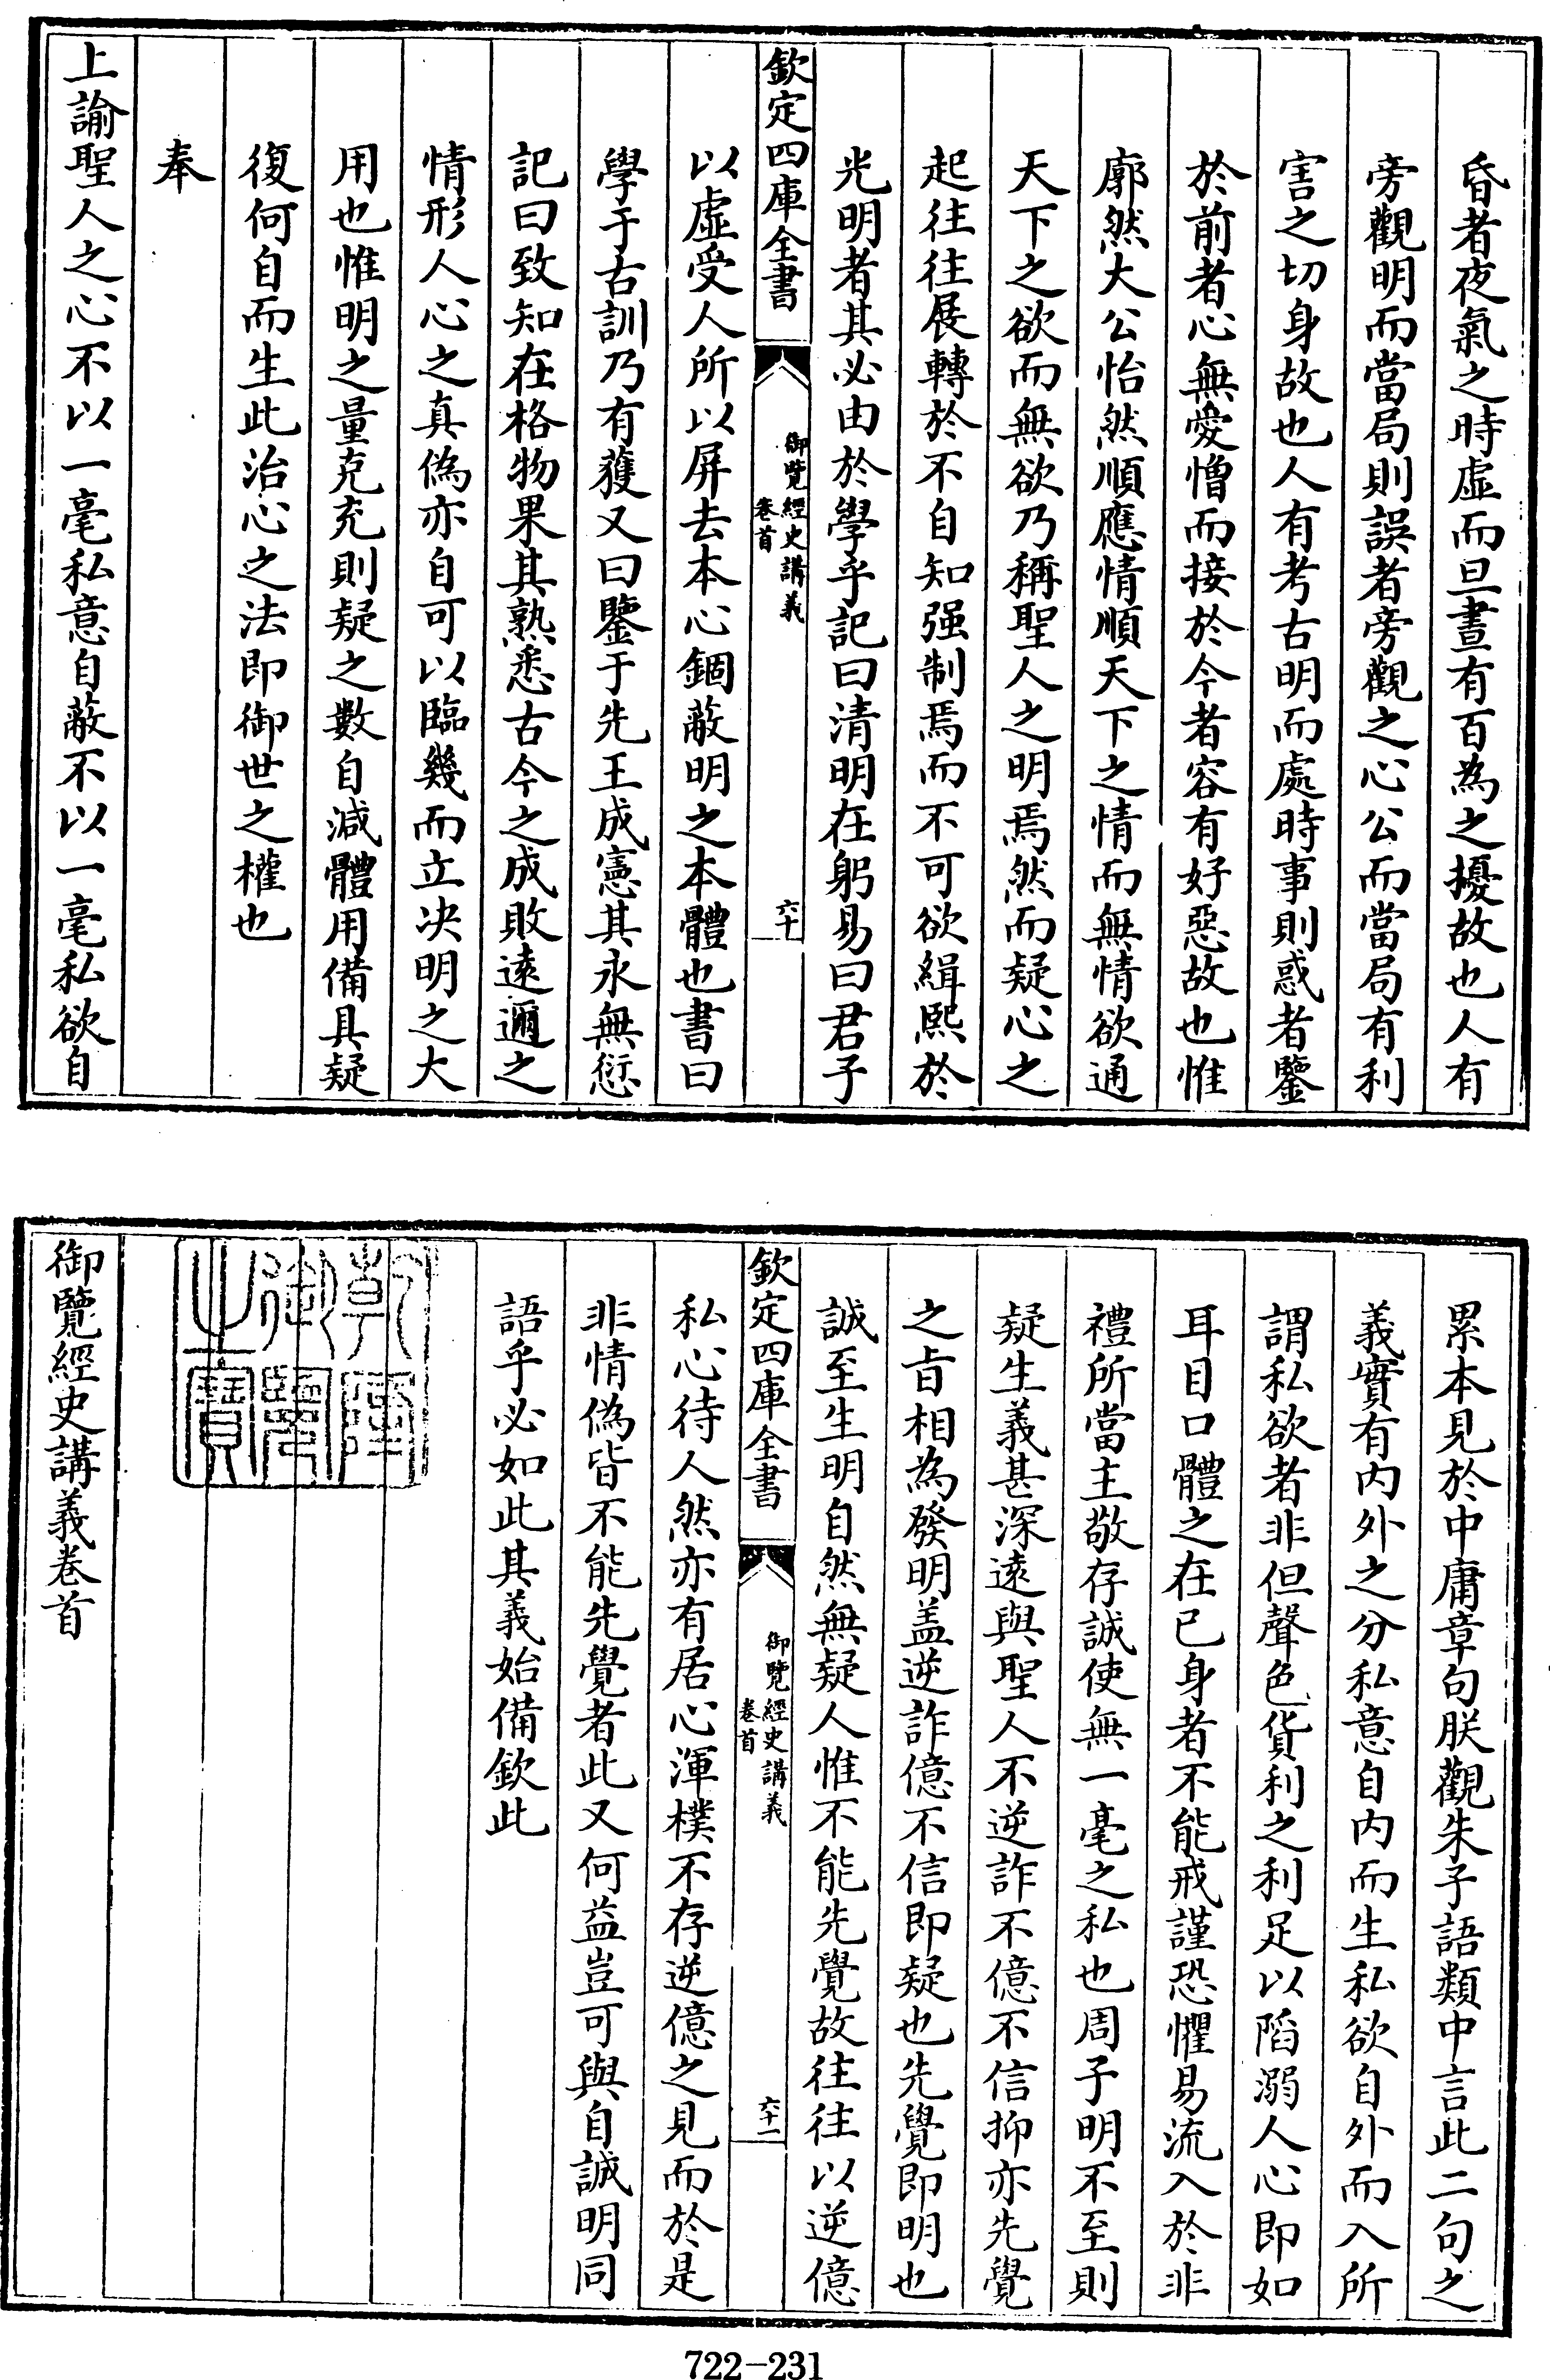 昏者夜氣之時虛而旦晝有百為之擾故也人有
旁觀明而當局則誤者旁觀之心公而當局有利
害之切身故也人有考古明而處時事則惑者鑒
於前者心無愛憎而接於今者容有好惡故也惟
廓然大公怡然順應情順天下之情而無情欲通
天下之欲而無欲乃稱聖人之明焉然而疑心之
起往往展轉於不自知强制焉而不可欲緝熙於
光明者其必由於學乎記曰清明在躬易曰君子
欽定四庫全書
御覽經史講義
卷首
六十
以虛受人所以屏去本心錮蔽明之本體也書曰
學于古訓乃有獲又曰鑒于先王成憲其永無愆
記曰致知在格物果其熟悉古今之成敗遠邇之
情形人心之真偽亦自可以臨幾而立决明之大
用也惟明之量克充則疑之數自減體用備具疑
復何自而生此治心之法即御世之權也
奉
上諭聖人之心不以一毫私意自蔽不以一毫私欲自
累本見於中庸章句朕觀朱子語類中言此二句之
義實有内外之分私意自内而生私欲自外而入所
謂私欲者非但聲色貨利之利足以陷溺人心即如
耳目口體之在已身者不能戒謹恐懼易流入於非
禮所當主敬存誠使無一毫之私也周子明不至則
疑生義甚深遠與聖人不逆詐不億不信抑亦先覺
之㫖相為發明盖逆詐億不信即疑也先覺即明也
誠至生明自然無疑人惟不能先覺故往往以逆億
欽定四庫全書
御覽經史講義
卷首
六十一
私心待人然亦有居心渾樸不存逆億之見而於是
非情偽皆不能先覺者此又何益豈可與自誠明同
語乎必如此其義始備欽此
乾隆
御覽
之寶
御覽經史講義卷首
722-231